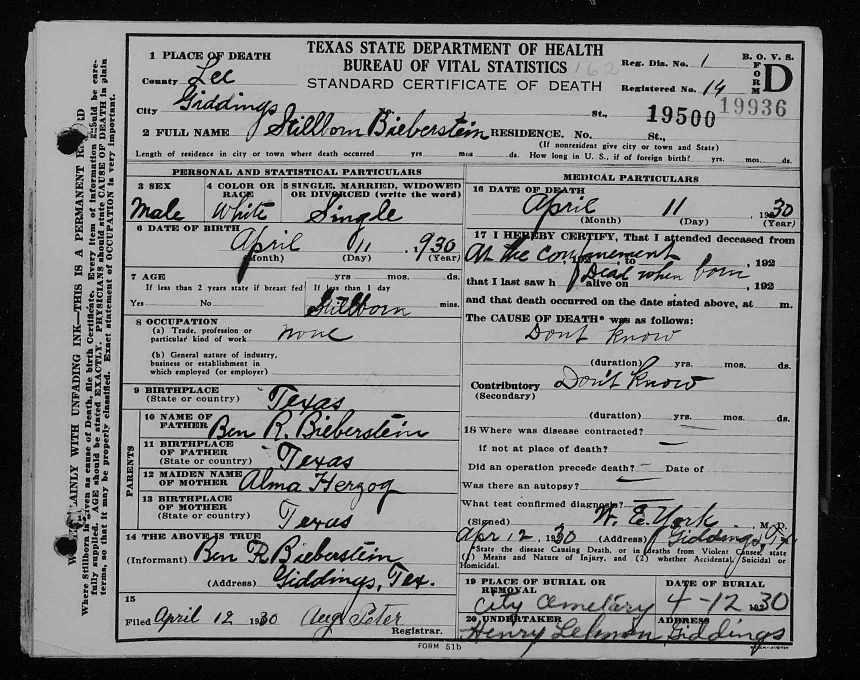 TEXAS STATE DEPARTMENT OF HEALTH
BUREAU OF VITAL STATISTICS 162
STANDARD CERTIFICATE OF DEATH
Reg. Dis. No. 1
B. O. V. S.
FORM D
Registered No. 14
19500 19936
1 PLACE OF DEATH
County Lee
City Giddings St.,
2 FULL NAME Stillborn Bieberstein RESIDENCE. No. St.,
(If nonresident give city or town and State)
Length of residence in city or town where death occurred yrs. mos. ds. How long in U. S., if of foreign birth? yrs. mos. ds.
PERSONAL AND STATISTICAL PARTICULARS
3 SEX Male
4 COLOR OR RACE White
5 SINGLE, MARRIED, WIDOWED OR DIVORCED (write the word) Single
6 DATE OF BIRTH April 11, 1930
(Month) (Day) (Year)
7 AGE yrs mos. ds.
If less than 2 years state if breast fed If less than 1 day
Yes No Stillborn mins.
8 OCCUPATION
(a) Trade, profession or particular kind of work none
(b) General nature of industry, business or establishment in which employed (or employer)
9 BIRTHPLACE (State or country) Texas
PARENTS
10 NAME OF FATHER Ben R. Bieberstein
11 BIRTHPLACE OF FATHER (State or country) Texas
12 MAIDEN NAME OF MOTHER Alma Herzog
13 BIRTHPLACE OF MOTHER (State or country) Texas
14 THE ABOVE IS TRUE
(Informant) Ben R Bieberstein
(Address) Giddings, Tex.
15
Filed April 12 1930 Aug Peter
Registrar.
MEDICAL PARTICULARS
16 DATE OF DEATH
April 11, 1930
(Month) (Day) (Year)
17 I HEREBY CERTIFY, That I attended deceased from
At the confinement, 192 , to , 192
that I last saw h alive on Dead when born, 192
and that death occurred on the date stated above, at m.
The CAUSE OF DEATH* was as follows:
Don't know
(duration) yrs. mos. ds.
Contributory Don't know
(Secondary)
(duration) yrs. mos. ds.
18 Where was disease contracted? —
if not at place of death? —
Did an operation precede death? — Date of
Was there an autopsy? —
What test confirmed diagnosis? —
(Signed) W. E. York, M. D.
Apr 12, 1930 (Address) Giddings, Tx
*State the disease Causing Death, or in deaths from Violent Causes, state
(1) Means and Nature of Injury, and (2) whether Accidental, Suicidal or
Homicidal.
19 PLACE OF BURIAL OR REMOVAL City Cemetary
DATE OF BURIAL 4-12 1930
20 UNDERTAKER Henry Lehman
ADDRESS Giddings
FORM 51b
WRITE PLAINLY WITH UNFADING INK—THIS IS A PERMANENT RECORD
Where Stillborn is given as cause of Death, file birth Certificate. Every item of information should be care-
fully supplied. AGE should be stated EXACTLY. PHYSICIANS should state CAUSE OF DEATH in plain
terms, so that it may be properly classified. Exact statement of OCCUPATION is very important.